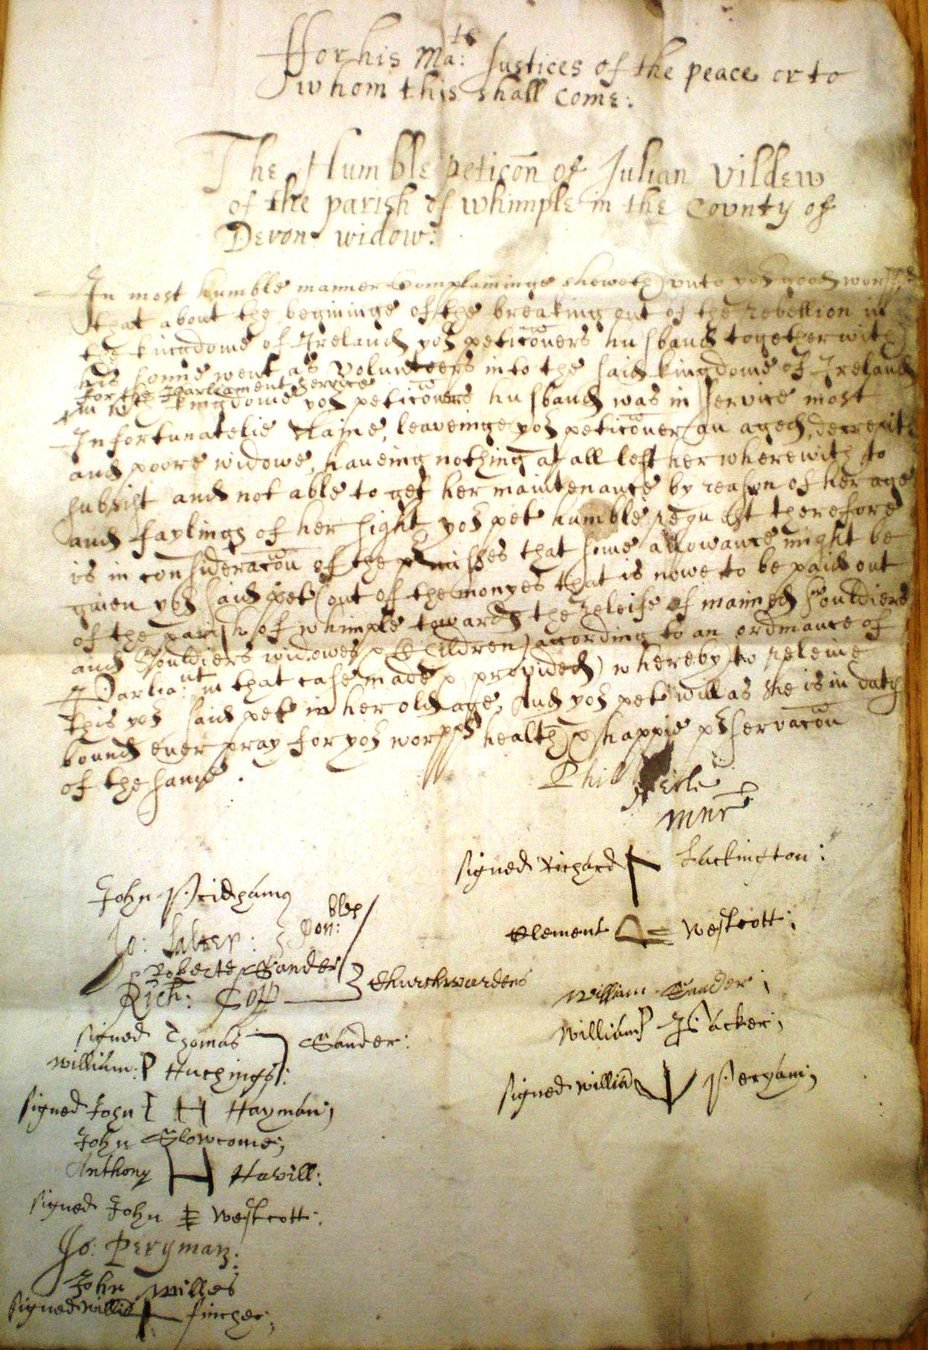 ffor his Ma:ts Justices of the peace or to
whom this shall come:
The Humble peticōn of Julian Vildew
of the parish of whimple in the County of
Devon widow:
In most humble manner Complaininge sheweth vnto yor good worpps
that about the beginnge of the breaking out of the rebellion in
the kingdome of Ireland yor peticōners husband together with
his sonne went as Volunteers into the said kingdome of Ireland
for the Parliament service
in wch kingdome yor peticōners husband was in service most
Infortunatelie slaine, leaveinge yor peticōner (an aged, decrepitt
and poore widowe, haueing nothing at all left her wherewith to
subsist and not able to get her maintenance by reason of her age
and faylings of her sight yor pet humble request therefore
is in consideracōn of the prmisses that some allowance might be
giuen yor said pet (out of the monyes that is nowe to be paid out
of the parish of whimple towards the releife of maimed souldiers
and Souldiers widowes & Children) according to an ordinance of
Parliamt in that case made & provided) whereby to releive
this yor said pet in her old age, And yor pet will as she is in duty
bound ever pray for yor worpps health & happie prservacōn
of the same.
Phil
minr
signed Richard Lackington:
John Pridham
Jo: Salter: Conbles
Clement Westcott;
Roberte Sander
Rich: Churchwardens
William Sander;
William Hacker;
signed Thomas Sander:
William: P Hutchings:
signed William Peryam;
signed John H Hayman;
John Slowcome;
Anthony H Hawill:
signed John Westcott:
Jo: Peryman:
John Willes
signed William fincher;